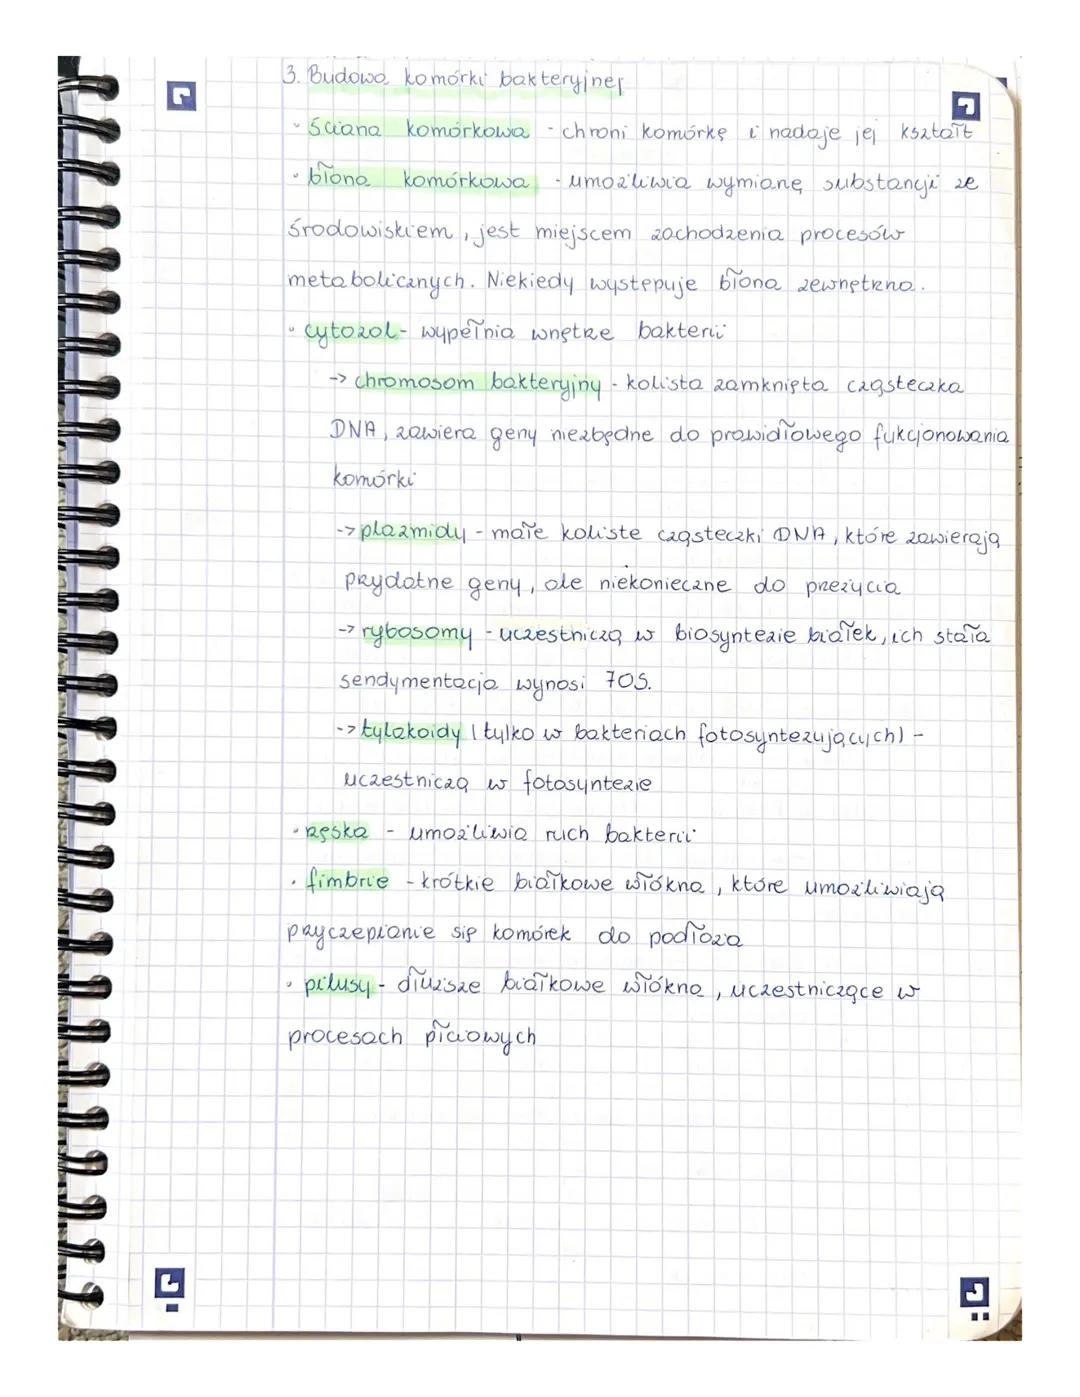 3. Budowa komórki bakteryjnej
• ściana komórkowa - chroni komórkę i nadaje jej kształt
• błona komórkowa - umożliwia wymianę substancji ze
środowiskiem, jest miejscem zachodzenia procesów
metabolicznych. Niekiedy występuje błona zewnętrzna.
• cytozol - wypełnia wnętrze bakterii
-> chromosom bakteryjny - kolista zamknięta cząsteczka
DNA, zawiera geny niezbędne do prawidłowego fukcjonowania
komórki
-> plazmidy - małe koliste cząsteczki DNA, które zawierają
przydatne geny, ale niekonieczne do przeżycia
-> rybosomy - uczestniczą w biosyntezie białek, ich stała
sendymentacja wynosi 70S.
-> tylakoidy (tylko w bakteriach fotosyntezujących) -
uczestniczą w fotosyntezie
• rzęska - umożliwia ruch bakterii
• fimbrie - krótkie białkowe włókna, które umożliwiają
przyczepianie się komórek do podłoża
• pilusy - dłuższe białkowe włókna, uczestniczące w
procesach płciowych